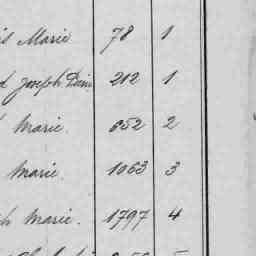 Marie 78 1
Joseph 212 1
Marie. 652 2
Marie. 1063 3
Marie. 1797 4